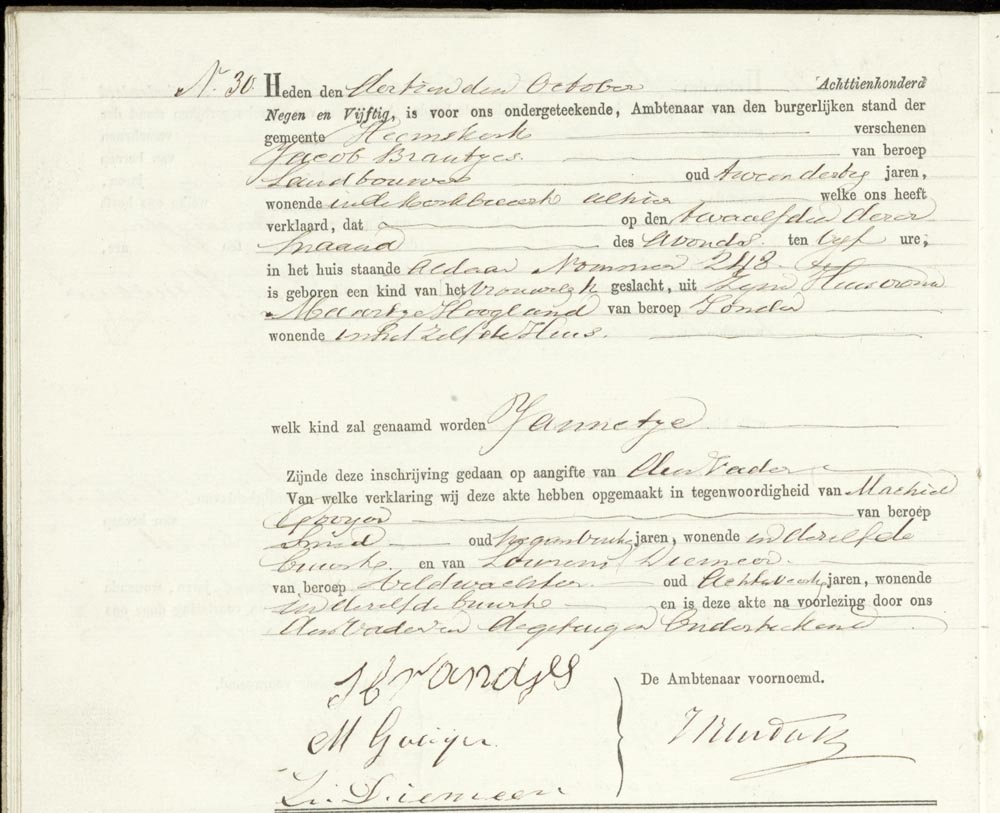 N. 30. Heden den dertienden October Achttienhonderd
Negen en Vijftig, is voor ons ondergeteekende, Ambtenaar van den burgerlijken stand der
gemeente Heemskerk verschenen
Jacob Brantjes. van beroep
Landbouwer oud tweendertig jaren,
wonende in de kerkbuurt alhier welke ons heeft
verklaard, dat op den twaalfden dezer
maand des Avonds. ten vyf ure,
in het huis staande Aldaar Nommer 248
is geboren een kind van het vrouwelyk geslacht, uit Zyne Huisvrouw
Maartje Hoogland van beroep Zonder
wonende in het zelfde Huis.
welk kind zal genaamd worden Jannetje
Zijnde deze inschrijving gedaan op aangifte van den Vader
Van welke verklaring wij deze akte hebben opgemaakt in tegenwoordigheid van Machiel
van beroep
Smid oud jaren, wonende in dezelfde
buurte en van Lourens Diemeer
van beroep Veldwachter. oud Achtenveertig jaren, wonende
in dezelfde buurte en is deze akte na voorlezing door ons
den Vader en de getuigen Onderteekend
J Brandjes De Ambtenaar voornoemd.
M
L. Diemeer